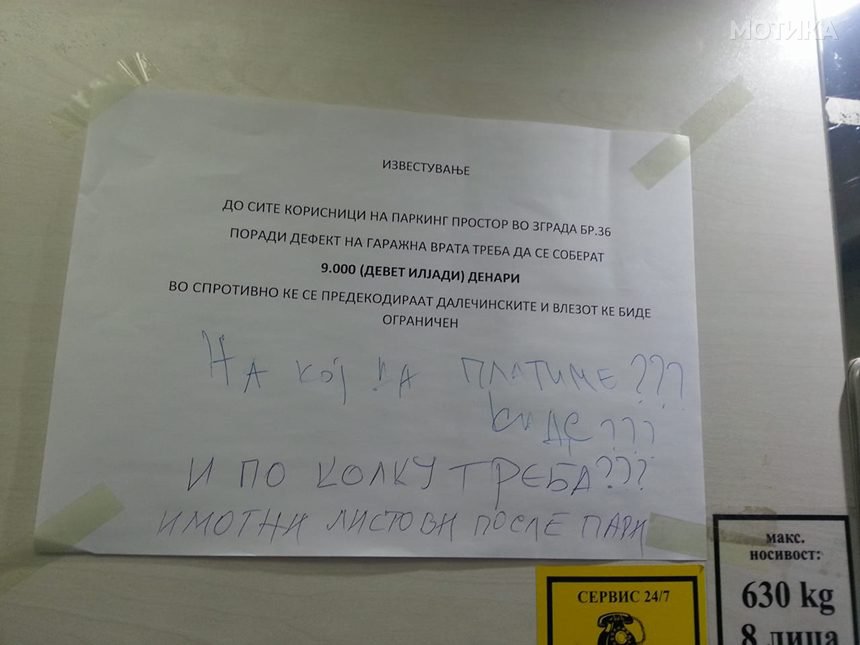 МОТИКА
ИЗВЕСТУВАЊЕ
ДО СИТЕ КОРИСНИЦИ НА ПАРКИНГ ПРОСТОР ВО ЗГРАДА БР.36
ПОРАДИ ДЕФЕКТ НА ГАРАЖНА ВРАТА ТРЕБА ДА СЕ СОБЕРАТ
9.000 (ДЕВЕТ ИЛЈАДИ) ДЕНАРИ
ВО СПРОТИВНО КЕ СЕ ПРЕДЕКОДИРААТ ДАЛЕЧИНСКИТЕ И ВЛЕЗОТ КЕ БИДЕ
ОГРАНИЧЕН
НА КОЈ ДА ПЛАТИМЕ???
???
И ПО КОЛКУ ТРЕБА???
ИМОТНИ ЛИСТОВИ ПОСЛЕ ПАРИ
СЕРВИС 24/7
макс.
носивост:
630 kg
8 лица